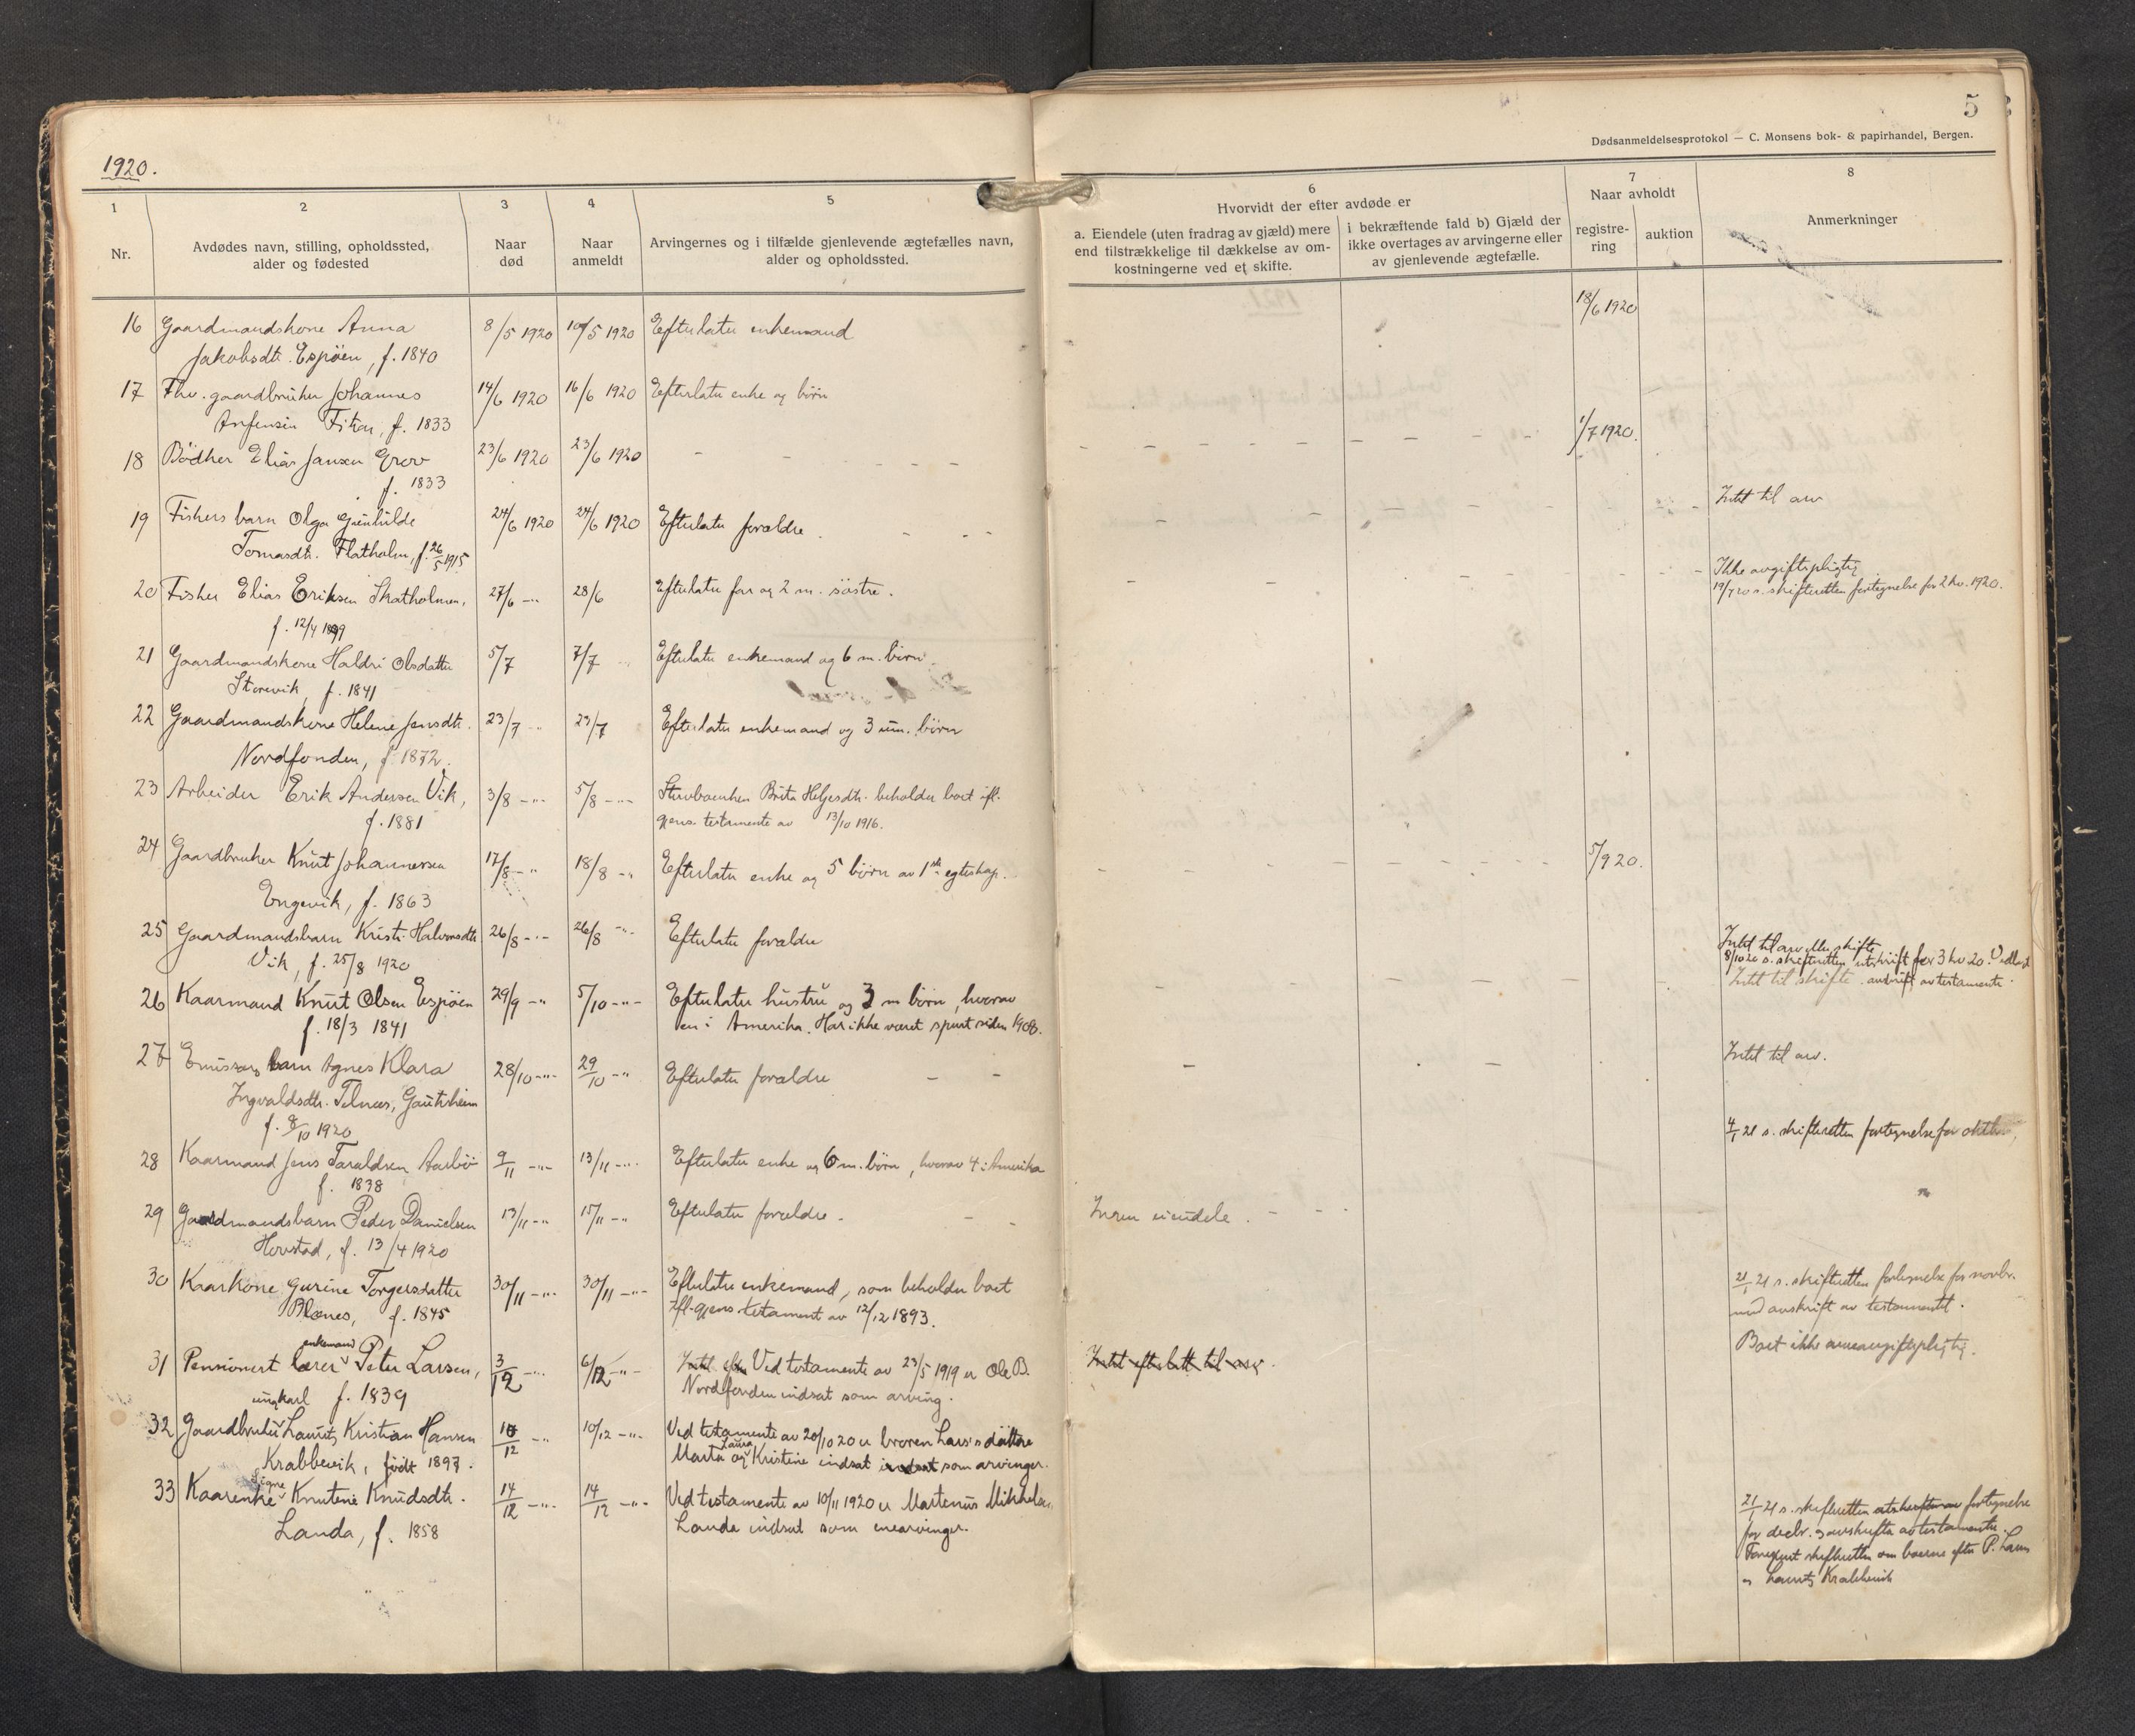 5
Dødsanmeldelsesprotokol — C. Monsens bok- & papirhandel, Bergen.
1920.
1
Nr.
2
Avdødes navn, stilling, opholdssted,
alder og fødested
3
Naar
død
4
Naar
anmeldt
5
Arvingernes og i tilfælde gjenlevende ægtefælles navn,
alder og opholdssted.
6
Hvorvidt der efter avdøde er
a. Eiendele (uten fradrag av gjæld) mere
end tilstrækkelige til dækkelse av om-
kostningerne ved et skifte.
i bekræftende fald b) Gjæld der
ikke overtages av arvingerne eller
av gjenlevende ægtefælle.
7
Naar avholdt
registre-
ring
auktion
8
Anmerkninger
16 Gaardmandskone Anna 8/5 1920 10/5 1920 Efterlater enkemand 18/6 1920
Jakobsdtr. Espöen, f. 1840
17 Fhv. gaardbruker Johannes 14/6 1920 16/6 1920 Efterlater enke og börn
Anfensen Fitjar, f. 1833
18 Bödker Elias Jansen Grov 23/6 1920 23/6 1920 - - - - - 1/7 1920.
f. 1833
Intet til arv
19 Fiskers barn Olga Gunhilde 24/6 1920 24/6 1920 Efterlater forældre.
Tomasdtr. Flatholm, f. 26/5 1915
Ikke avgiftspligtig
20 Fisker Elias Eriksen Skatholmen, 27/6 -"- 28/6 Efterlater far og 2 m. söstre. 19/7 20 s. skifteretten fortegnelse for 2 kv. 1920.
f. 12/4 1899
21 Gaardmandskone Haldri Olsdatter 5/7 7/7 Efterlater enkemand og 6 m. börn.
Storevik, f. 1841
22 Gaardmandskone Helene Jensdtr. 23/7 23/7 Efterlater enkemand og 3 um. börn
Nordfonden, f. 1872.
23 Arbeider Erik Andersen Vik, 3/8 -"- 5/8 -"- Brita Helgesdtr. beholder boet ifl.
f. 1881 gjens. testamente av 13/10 1916.
24 Gaardbruker Knut Johannessen 17/8 -"- 18/8 -"- Efterlater enke og 5 börn av 1ste egteskap. 5/9 20.
Engevik, f. 1863
25 Gaardmandsbarn Kristi Halvorsdtr 26/8 -"- 26/8 -"- Efterlater forældre
Vik, f. 25/8 1920
Intet til arv eller skifte
8/10 20 s. skifteretten utskrift for 3 kv 20. Vedlagt
26 Kaarmand Knut Olsen Espöen 29/9 -"- 5/10 -"- Efterlater hustru og 3 m börn, hvorav Intet til skifte. avskrift av testamente.
f. 18/3 1841 en i Amerika. Har ikke været spurt siden 1908.
27 Emissærs barn Agnes Klara 28/10 -"- 29/10 -"- Efterlater forældre - - - - Intet til arv.
Ingvaldsdtr. Telnæs, Gautsheim
f. 8/10 1920
4/1 21 s. skifteretten fortegnelse for oktbr.
28 Kaarmand Jens Taraldsen Aarbö 9/11 -"- 13/11 -"- Efterlater enke og 6 m. börn, hvorav 4 i Amerika
f. 1838
29 Gaardmandsbarn Peder Danielsen 13/11 -"- 15/11 -"- Efterlater forældre. - - Ingen eiendele.
Hovstad, f. 13/4 1920
30 Kaarkone Gurine Torgersdatter 30/11 -"- 30/11 -"- Efterlater enkemand, som beholder boet 21/1 21 s. skifteretten fortegnelse for novbr.
Blænes, f. 1845 ifl. gjens. testament av 12/12 1893. med avskrift av testamentet.
enkemand
31 Pensionert lærer Peter Larsen, 3/12 -"- 6/12 -"- Intet efter Ved testamente av 23/5 1919 er Ole B. Intet efterlatt til arv. Boet ikke arveavgiftspligtig.
f. 1839 Nordfonden indsat som arving.
ungkarl
32 Gaardbruker Laurits Kristian Hansen 10/12 -"- 10/12 -"- Ved testamente av 20/10 20 er broren Lars's döttre
Krabbevik, född 1897. Marta Laura og Kristine indsat som arvinger.
Signe
33 Kaarenke Knutine Knudsdtr. 14/12 -"- 14/12 -"- Ved testamente av 10/11 1920 er Martinus Mikkelsen
Landa, f. 1858 Landa indsat som enearvinger.
21/1 21 s. skifteretten fortegnelse
for decbr. og avskrifter av testamenter.
Forespurt skifteretten om boerne efter P. Larsen
og Laurits Krabbevik